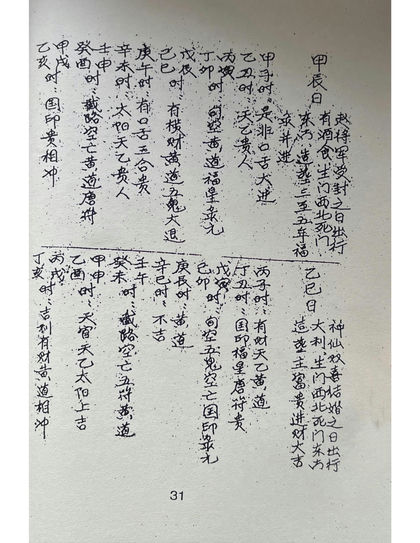 甲辰日
赵将军受封之日出行
有酒食生门西北死门
东方 造葬三至五年福
录并进
甲子时：是非口舌大进
乙丑时：天乙贵人
丙寅
丁卯时：旬空黄道福星录元
戊辰时：有横财黄道五鬼大退
己巳
庚午时：有口舌三合贵
辛未时：太阳天乙贵人
壬申
癸酉时：截路空亡黄道唐符
甲戌
乙亥时：国印贵相冲
乙巳日
神仙双喜结婚之日出行
大利生门西北死门东方
造葬主富贵进财大吉
丙子时：有财天乙黄道
丁丑时：国印福星唐符贵
戊寅
己卯时：旬空五鬼空亡国印录元
庚辰时：黄道
辛巳时：不吉
壬午
癸未时：截路空亡五符黄道
甲申
乙酉时：天官天乙太阳上吉
丙戌
丁亥时：吉利有财黄道相冲
31